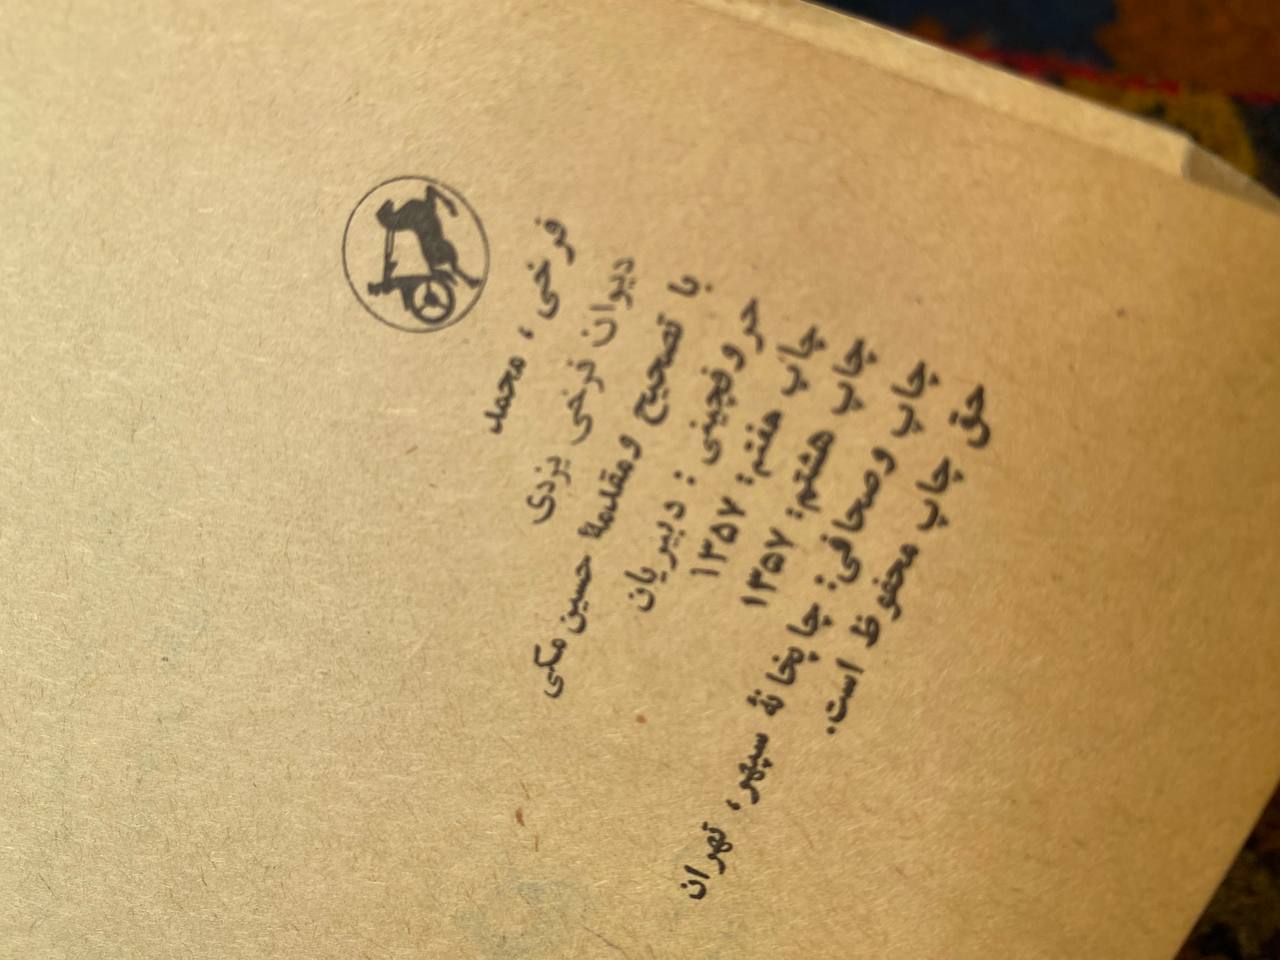 فرخی، محمد
دیوان فرخی یزدی
با تصحیح و مقدمهٔ حسین مکی
حروفچینی: دبیریان
چاپ هفتم: ۱۳۵۷
چاپ هشتم: ۱۳۵۷
چاپ و صحافی: چاپخانهٔ سپهر، تهران
حق چاپ محفوظ است.